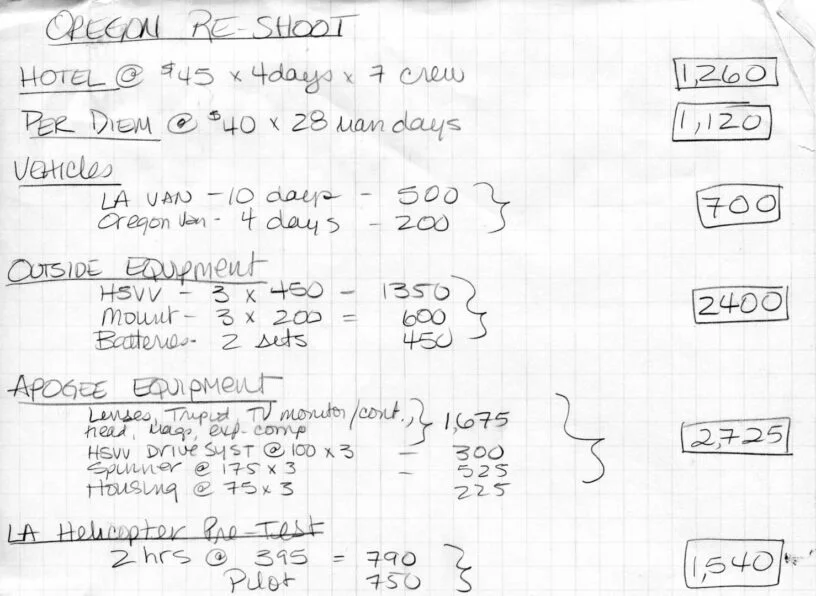 OREGON RE-SHOOT
HOTEL @ $45 x 4days x 7 crew 1,260
PER DIEM @ $40 x 28 man days 1,120
Vehicles
LA VAN - 10 days - 500
Oregon Van - 4 days - 200 700
OUTSIDE EQUIPMENT
HSVV - 3 x 450 - 1350
Mount - 3 x 200 = 600 2400
Batteries - 2 sets 450
APOGEE EQUIPMENT
Lenses, Tripod, TV monitor/cont., 1,675
head, mags, exp. comp
HSVV DRIVE SYST @ 100 x 3 - 300 2,725
Spinner @ 175 x 3 = 525
Housing @ 75 x 3 225
LA Helicopter Pre-Test
2 hrs @ 395 = 790 1,540
Pilot 750